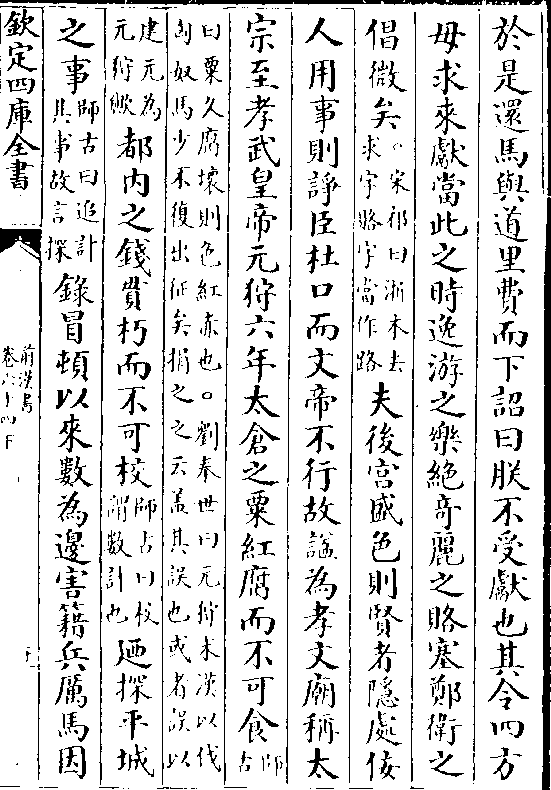 於是還馬與道里費而下詔曰朕不受獻也其令四方
毋求來獻當此之時逸游之樂絕奇麗之賂塞鄭衛之
倡微矣。宋祁曰浙本去求字賂字當作路夫後宮盛色則賢者隱處佞
人用事則諍臣杜口而文帝不行故諡為孝文廟稱太
宗至孝武皇帝元狩六年太倉之粟紅腐而不可食師古
曰粟久腐壞則色紅赤也。劉奉世曰元狩末漢以伐匈奴馬少不復出征矣捐之之云蓋其誤也或者誤以
建元為元狩歟都內之錢貫朽而不可校師古曰校謂數計也廼探平城
之事師古曰追計其事故言探錄冒頓以來數為邊害籍兵厲馬因
欽定四庫全書
前漢書
卷六十四下